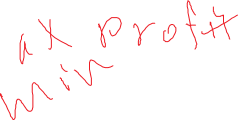 ax profit
min